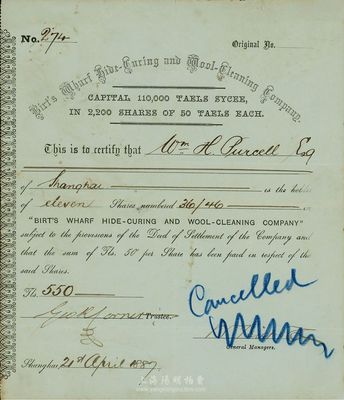 No. 2/74
Original No.
Birt's Wharf Hide-Curing and Wool-Cleaning Company.
CAPITAL 110,000 TAELS SYCEE,
IN 2,200 SHARES OF 50 TAELS EACH.
This is to certify that Wm H. Purcell, Esq
of Shanghai is the holder
of eleven Shares numbered 36/46 in
"BIRT'S WHARF HIDE-CURING AND WOOL-CLEANING COMPANY"
subject to the provisions of the Deed of Settlement of the Company and
that the sum of Tls. 50 per Share has been paid in respect of the
said Shares.
Tls. 550
Cancelled
Trustee.
General Managers.
Shanghai, 21st April 1887
上海阳明拍卖